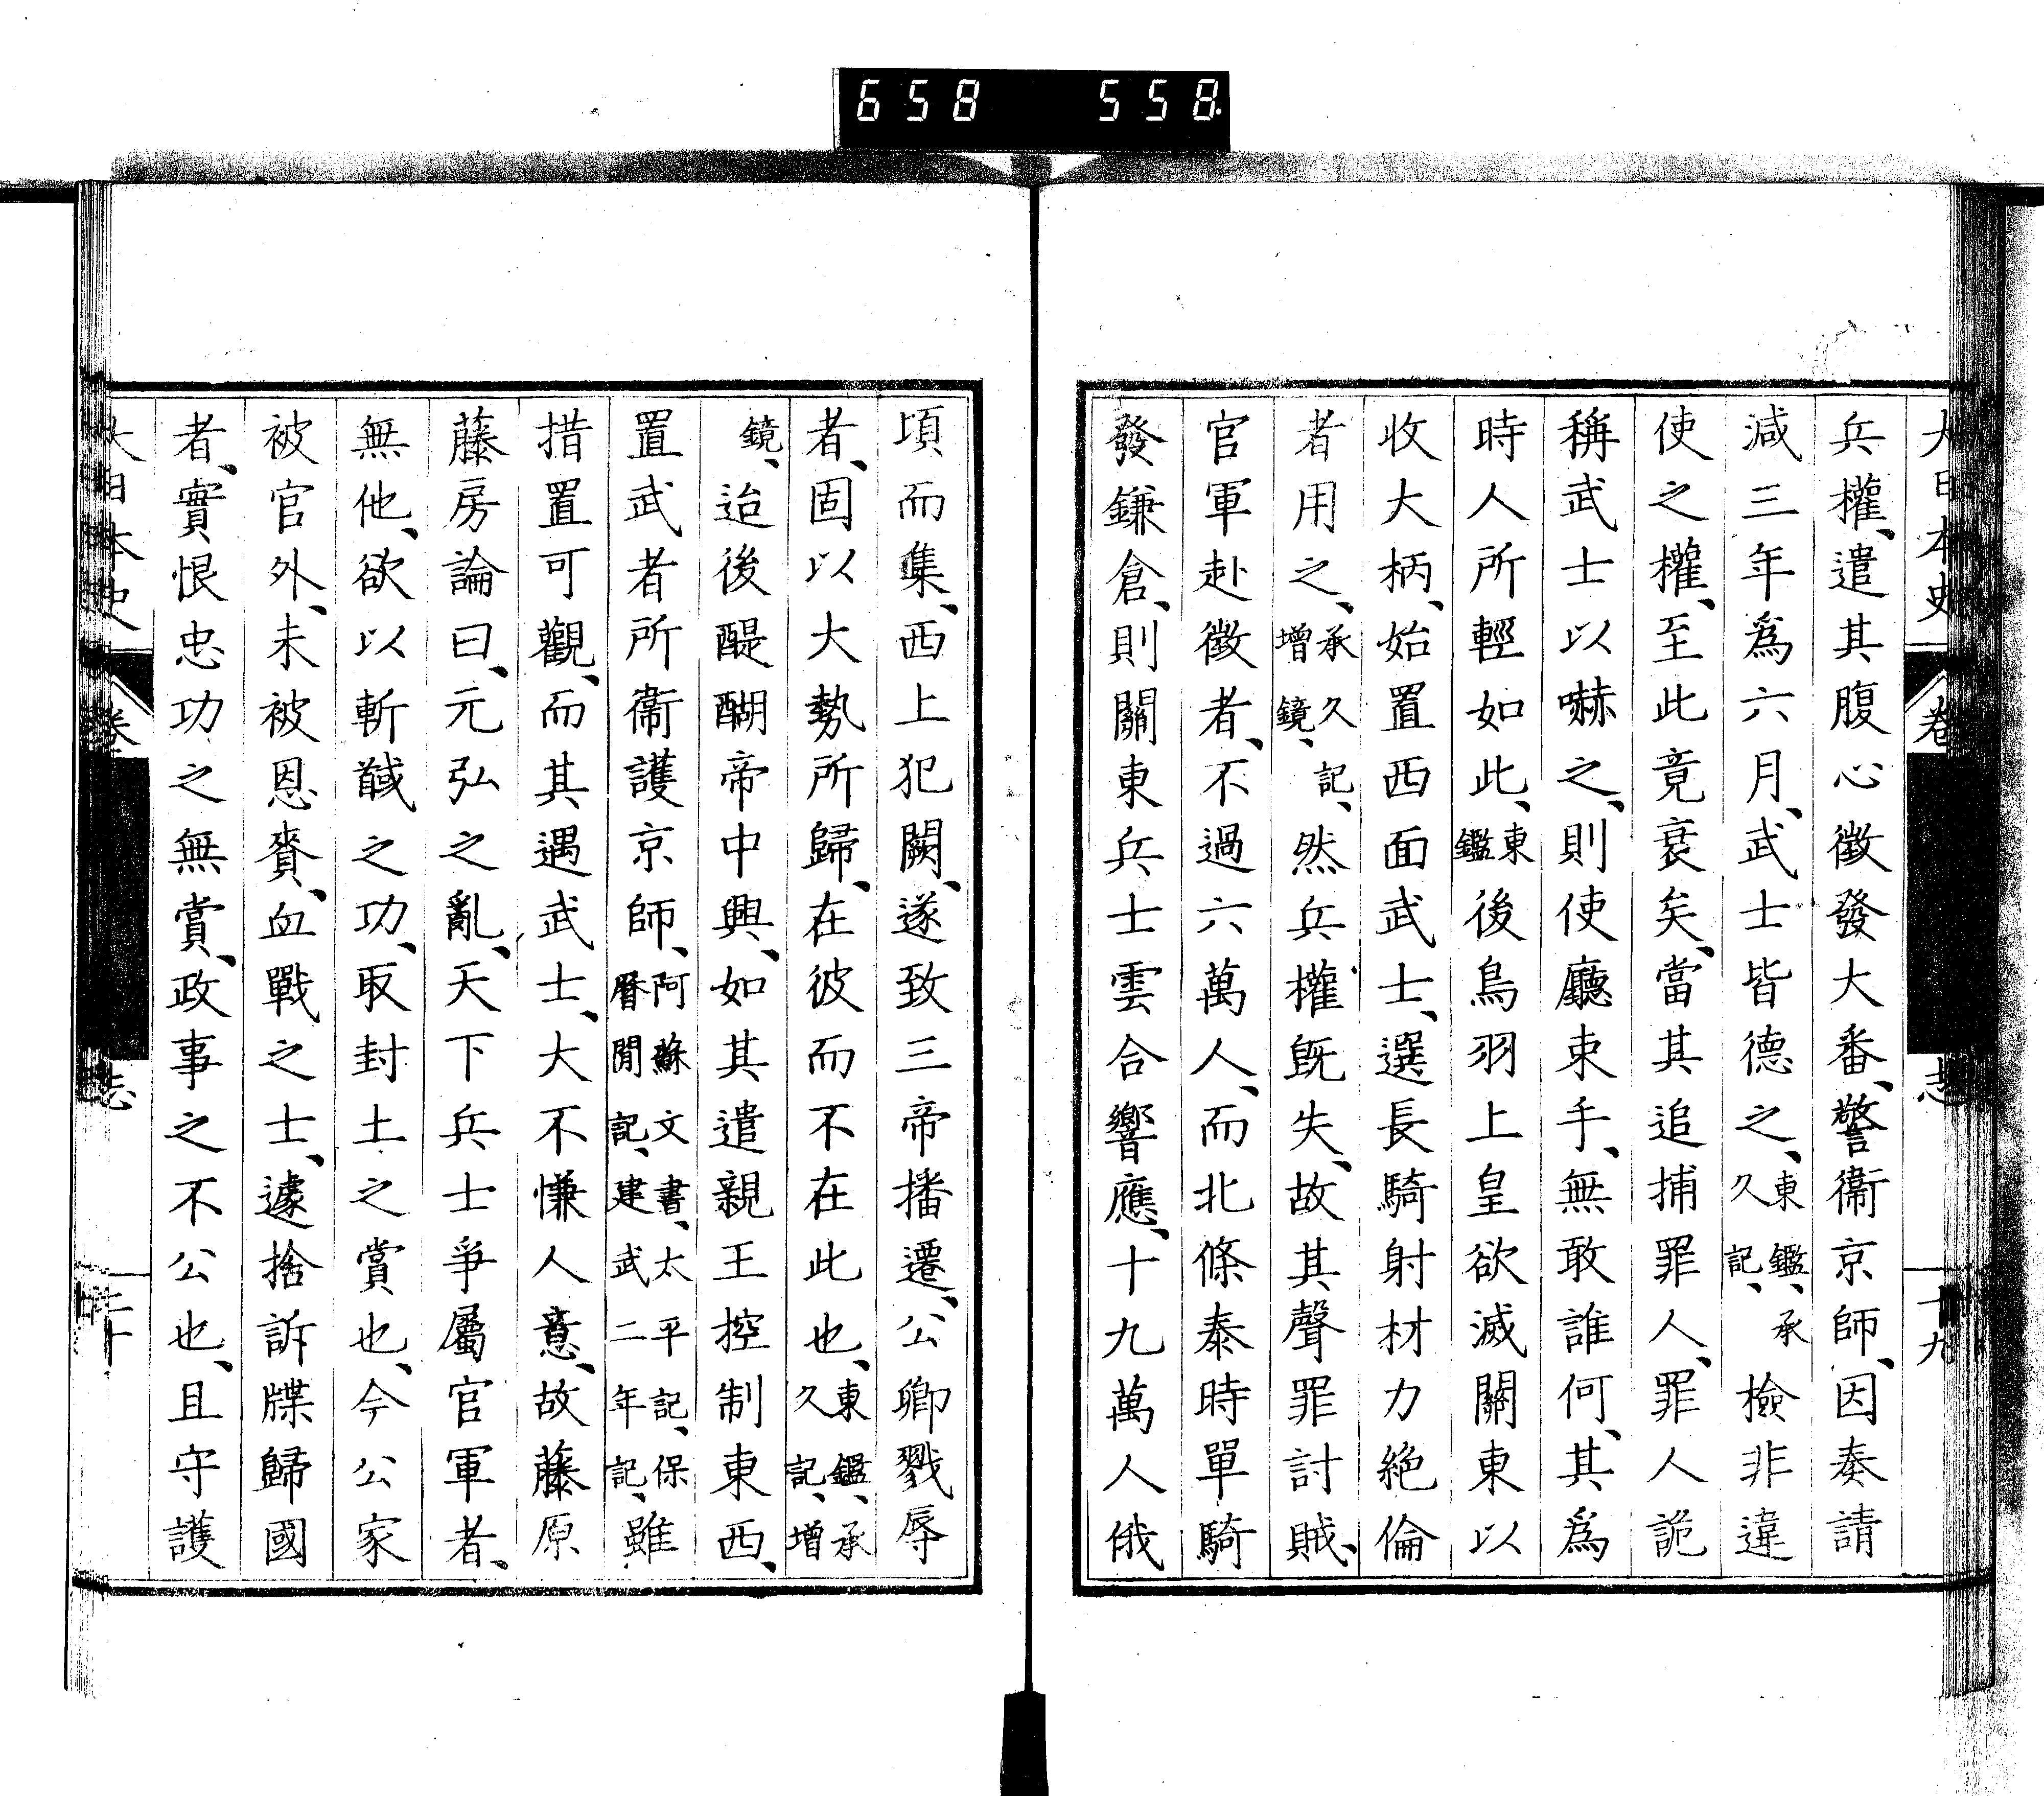 658 558
大日本史 卷 志 十九
兵權、遣其腹心徵發大番、警衞京師、因奏請
減三年爲六月、武士皆德之、東鑑、承久記、檢非違
使之權、至此竟衰矣、當其追捕罪人、罪人詭
稱武士以嚇之、則使廳束手、無敢誰何、其爲
時人所輕如此、東鑑後鳥羽上皇欲滅關東以
收大柄、始置西面武士、選長騎射材力絶倫
者用之、承久記、增鏡、然兵權既失、故其聲罪討賊、
官軍赴徵者、不過六萬人、而北條泰時單騎
發鎌倉、則關東兵士雲合響應、十九萬人俄
頃而集、西上犯闕、遂致三帝播遷、公卿戮辱
者、固以大勢所歸、在彼而不在此也、東鑑、承久記、增
鏡、迨後醍醐帝中興、如其遣親王控制東西、
置武者所衞護京師、阿蘇文書、太平記、保曆閒記、建武二年記、雖
措置可觀、而其遇武士、大不慊人意、故藤原
藤房論曰、元弘之亂、天下兵士爭屬官軍者、
無他、欲以斬馘之功、取封土之賞也、今公家
被官外、未被恩賚、血戰之士、遽捨訴牒歸國
者、實恨忠功之無賞、政事之不公也、且守護
大日本史 卷 志 二十